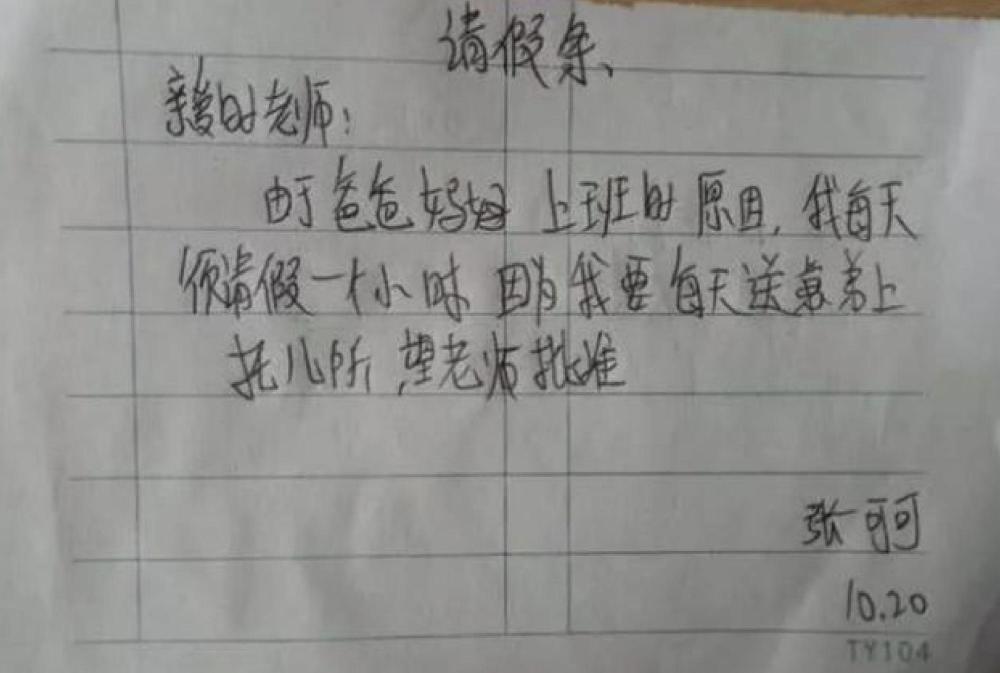 请假条
亲爱的老师:
由于爸爸妈妈上班的原因,我每天
须请假一个小时 因为我要每天送弟弟上
托儿所,望老师批准
张可可
10.20
TY104